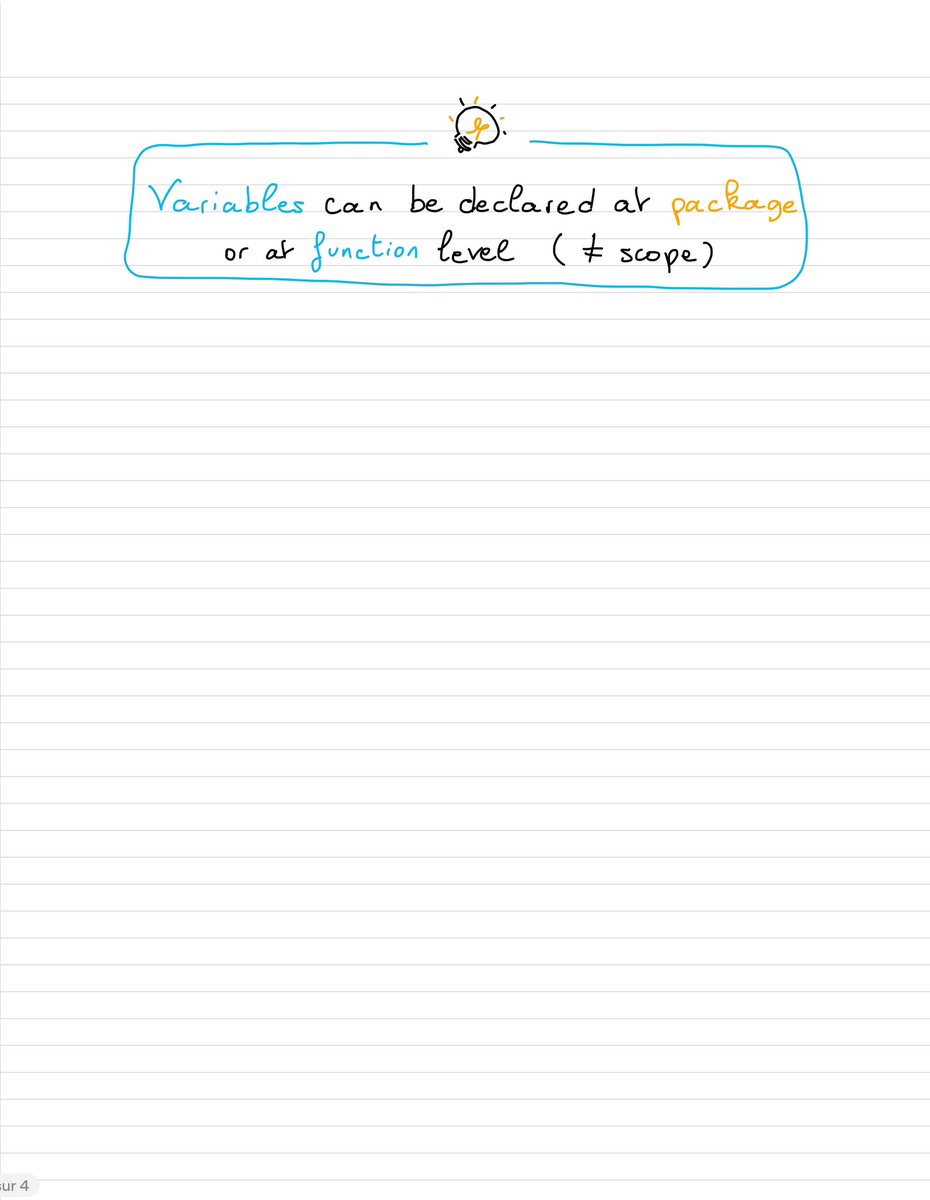 Variables can be declared at package
or at function level ( ≠ scope)
sur 4